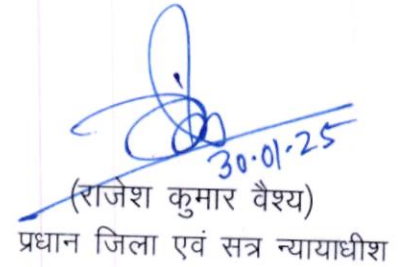 30.01.25
(राजेश कुमार वैश्य)
प्रधान जिला एवं सत्र न्यायाधीश